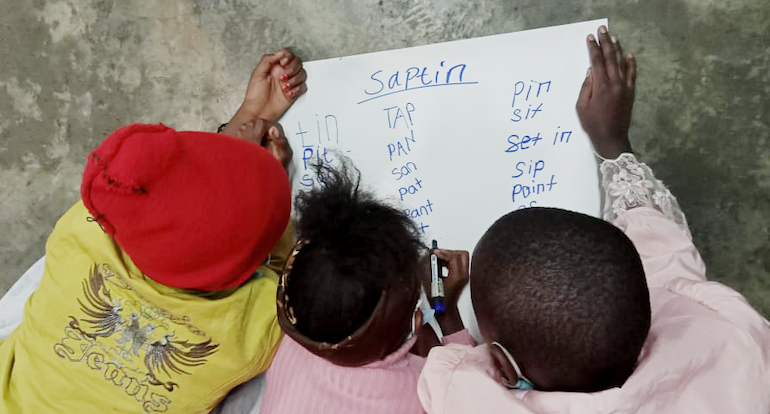 Saptin
tin
Pit
TAP
PAN
san
pat
pant
pin
sit
set in
sip
point